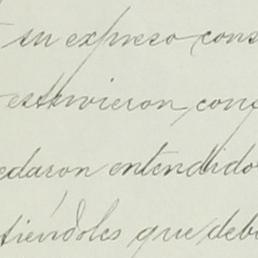 su expreso cons
estuvieron conf
edaron entendido
tiéndoles que deb